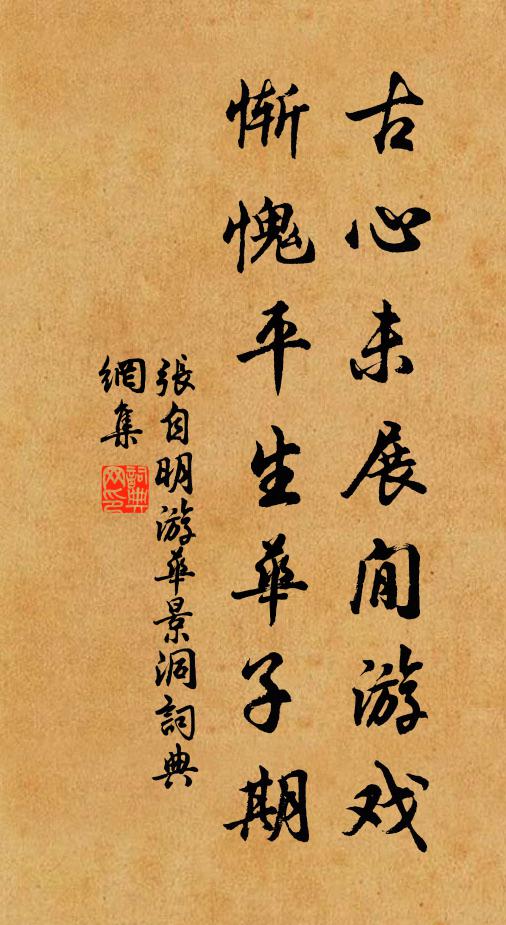 古心未展闲游戏
惭愧平生华子期
張自明游華景洞詞典
網集
詞典
网印